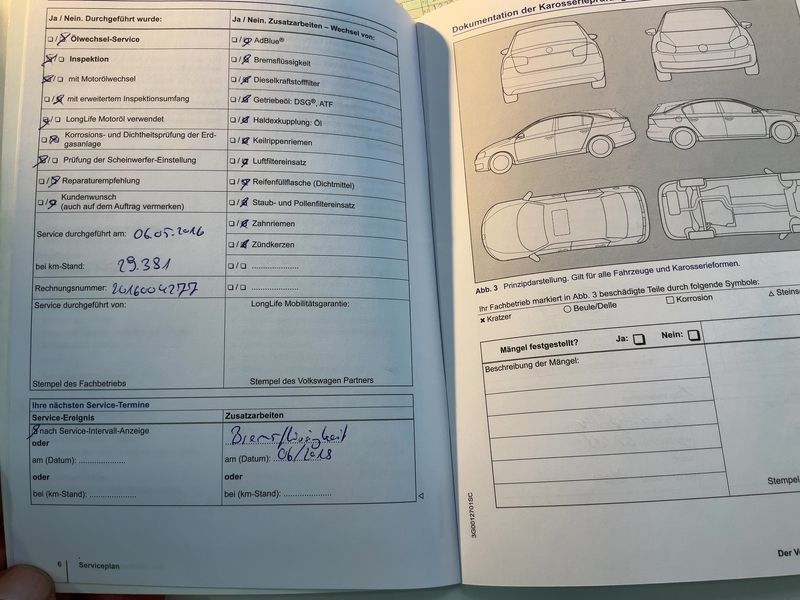 Ja / Nein. Durchgeführt wurde:
Ja / Nein. Zusatzarbeiten – Wechsel von:
❑ / ❑ Ölwechsel-Service
❑ / ❑ AdBlue®
❑ / ❑ Inspektion
❑ / ❑ Bremsflüssigkeit
❑ / ❑ mit Motorölwechsel
❑ / ❑ Dieselkraftstofffilter
❑ / ❑ mit erweitertem Inspektionsumfang
❑ / ❑ Getriebeöl: DSG®, ATF
❑ / ❑ LongLife Motoröl verwendet
❑ / ❑ Haldexkupplung: Öl
❑ / ❑ Korrosions- und Dichtheitsprüfung der Erd-
gasanlage
❑ / ❑ Keilrippenriemen
❑ / ❑ Prüfung der Scheinwerfer-Einstellung
❑ / ❑ Luftfiltereinsatz
❑ / ❑ Reparaturempfehlung
❑ / ❑ Reifenfüllflasche (Dichtmittel)
❑ / ❑ Kundenwunsch
(auch auf dem Auftrag vermerken)
❑ / ❑ Staub- und Pollenfiltereinsatz
❑ / ❑ Zahnriemen
Service durchgeführt am: 06.05.2016
❑ / ❑ Zündkerzen
bei km-Stand: 29.381
❑ / ❑ ......................
Rechnungsnummer: 2016004277
❑ / ❑ ......................
Service durchgeführt von:
LongLife Mobilitätsgarantie:
Stempel des Fachbetriebs
Stempel des Volkswagen Partners
Ihre nächsten Service-Termine
Service-Ereignis
Zusatzarbeiten
❑ nach Service-Intervall-Anzeige
Bremsflüssigkeit
oder
am (Datum): ......................
am (Datum): 06/2018
oder
oder
bei (km-Stand): ......................
bei (km-Stand): ......................
6 Serviceplan
Dokumentation der
Abb. 3 Prinzipdarstellung. Gilt für alle Fahrzeuge und Karosserieformen.
Ihr Fachbetrieb markiert in Abb. 3 beschädigte Teile durch folgende Symbole:
× Kratzer
○ Beule/Delle
□ Korrosion
△
Mängel festgestellt?
Ja: ❑
Nein: ❑
Beschreibung der Mängel:
Stempel
3G0012701SC
Der